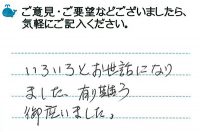 ご意見・ご要望などございましたら、
気軽にご記入ください。
いろいろとお世話になり
ました、有り難う
御座いました。